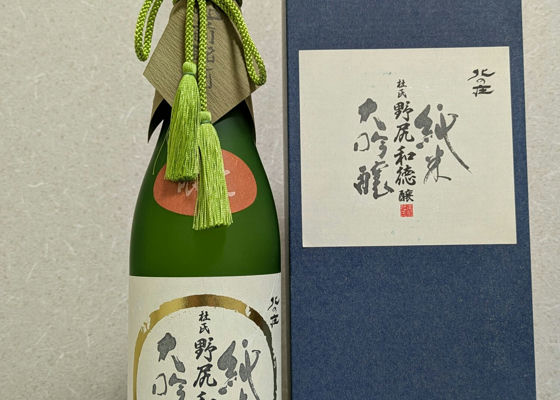 北の荘
純米
大吟醸
杜氏
野尻和徳
醸
北の荘
純米
大吟
杜氏
野尻和